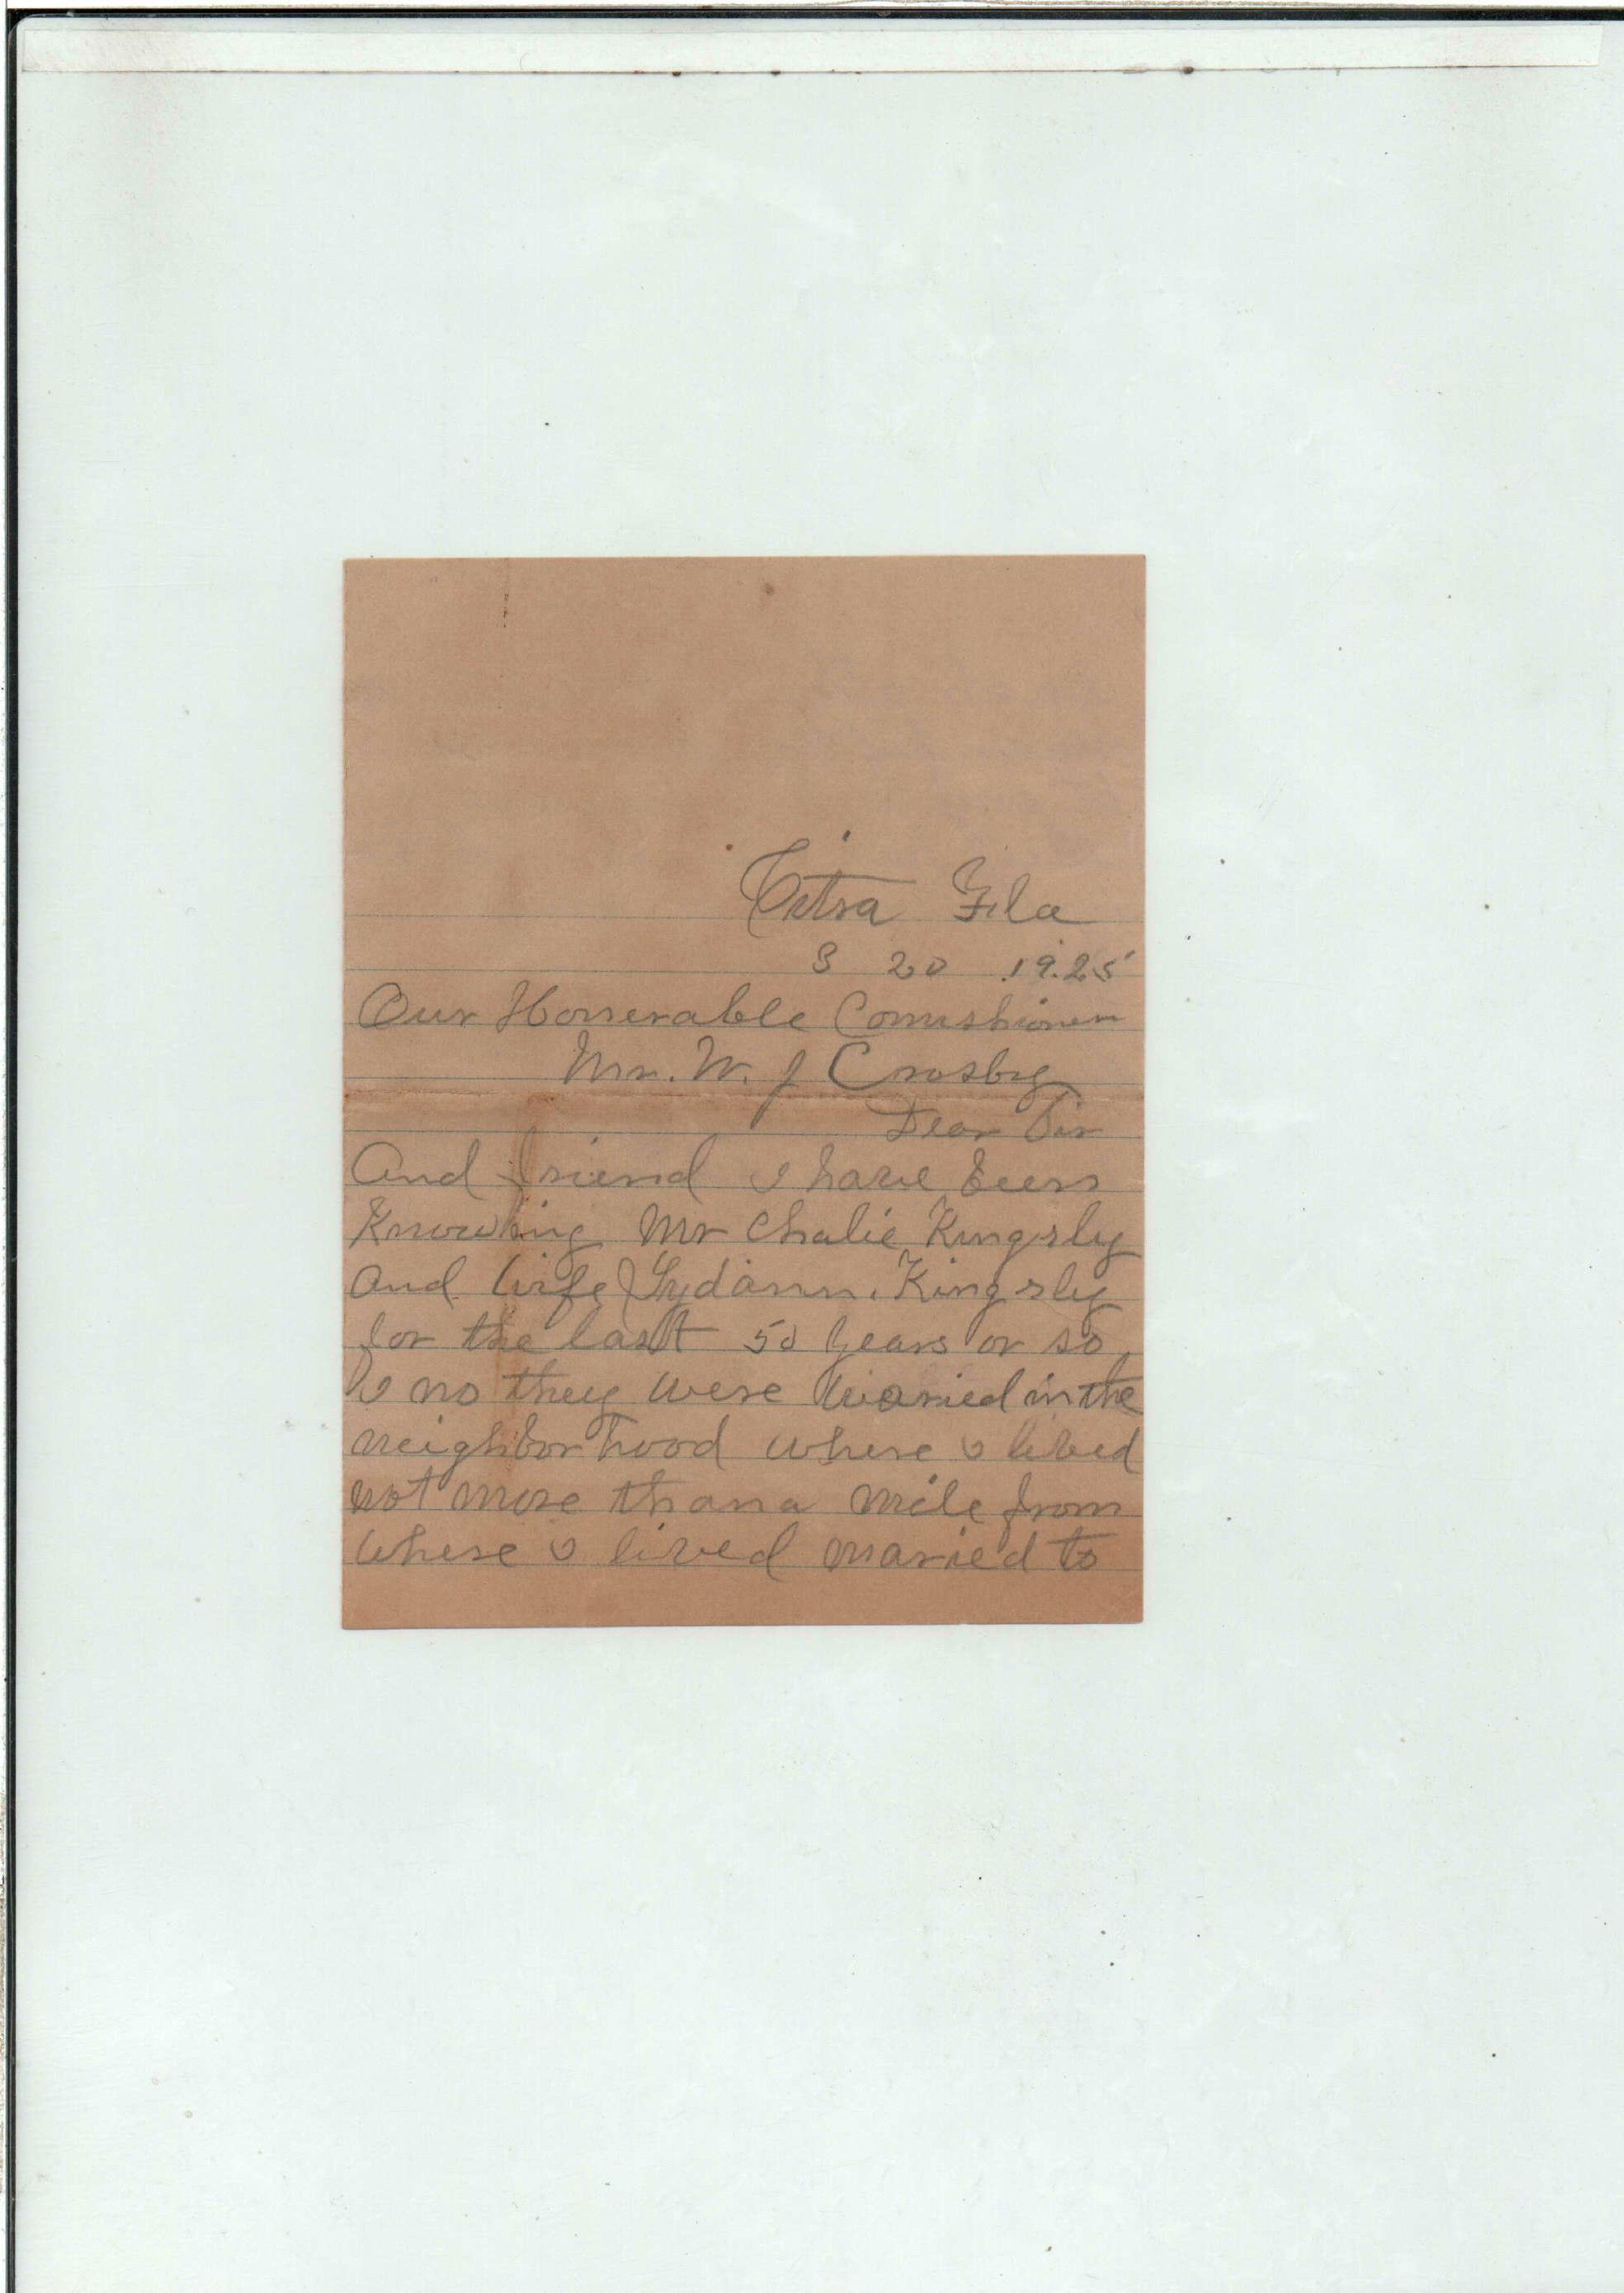 Citra Fla
3 20 1925
Our Honerable Comishioner
Mr. W. J Crosby
Dear Sir
And friend I have been
Knowing Mr Chalie Kingsly
and wife Lydann. Kingsly
for the last 50 years or so
I no they were maried in the
neighbor hood where I lived
not more than a mile from
where I lived maried to